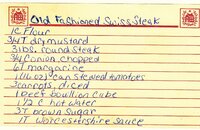 Old Fashioned Swiss Steak
1C Flour
3/4T dry mustard
3 lbs. round steak
3/4C onion chopped
6T margarine
1 (16 oz) can stewed tomatoes
3 carrots, diced
1 beef bouillon cube
1/2 C hot water
3T brown Sugar
1T Worcestershire Sauce